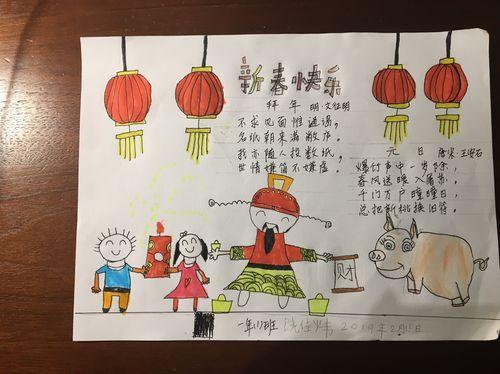 新春快乐
拜年 明·文征明
不求见面惟通谒,
名纸朝来满敝庐。
我亦随人投数纸,
世情嫌简不嫌虚。
元日 唐宋·王安石
爆竹声中一岁除,
春风送暖入屠苏。
千门万户曈曈日,
总把新桃换旧符。
财
一年 班
2019年2月 日